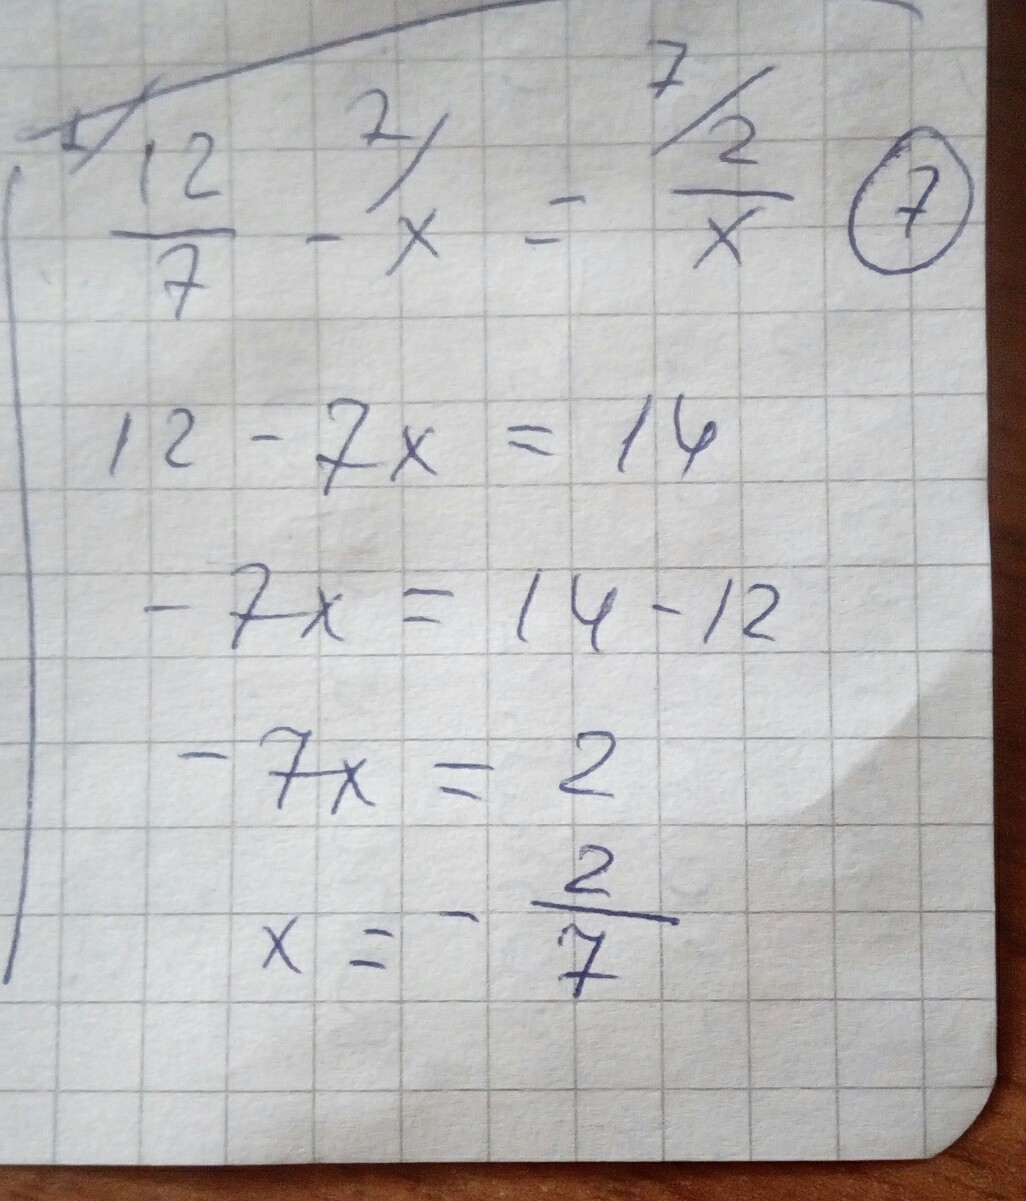 1/ 12/7 - 7/ x = 7/ 2/x (7)
12 - 7x = 14
- 7x = 14 - 12
- 7x = 2
x = - 2/7